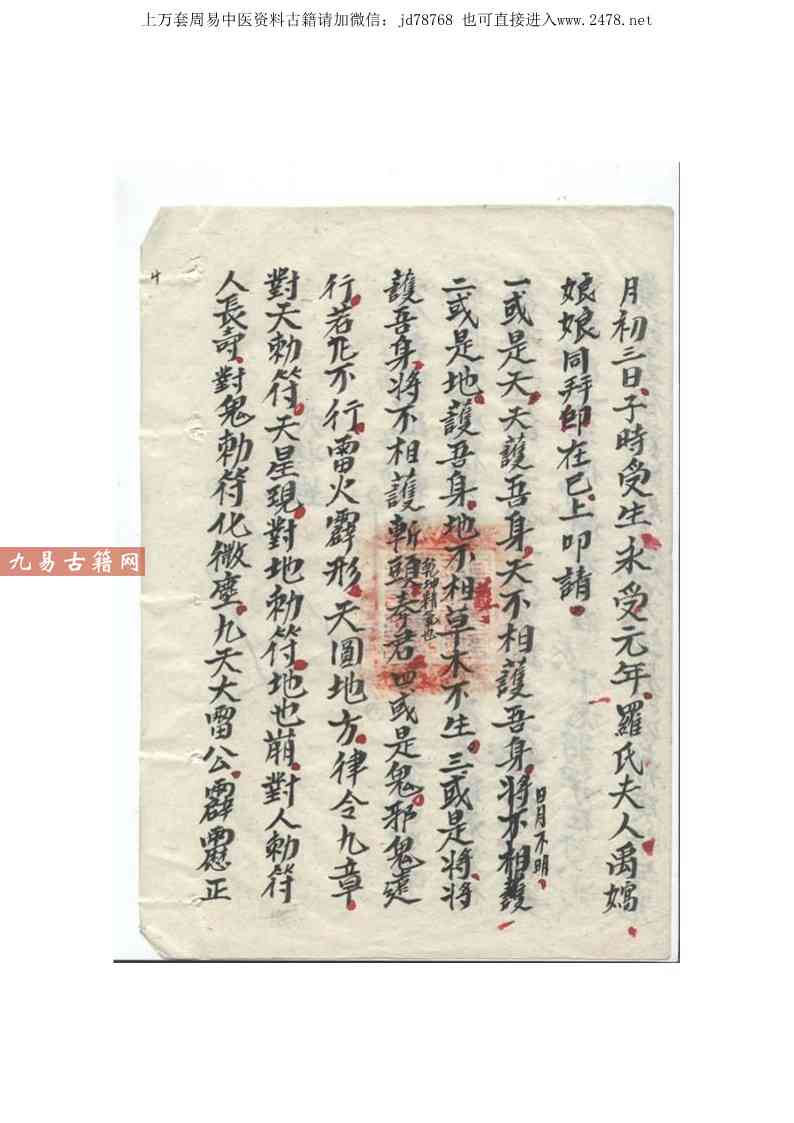 上万套周易中医资料古籍请加微信：jd78768 也可直接进入www.2478.net
月初三日子時受生永受元年羅氏夫人禹嫣
娘娘同拜即在已上叩請
一或是天天護吾身天不相護吾身將不相護
日月不明
二或是地護吾身地不相草木不生三或是將將
乾坤精氣也
護吾身將不相護斬頭奉君四或是鬼邪鬼遠
行若不行雷火霹形天圓地方律令九章
對天勅符天星現對地勅符地也崩對人勅符
人長壽對鬼勅符化微塵九天大雷公霹靂正
九易古籍网